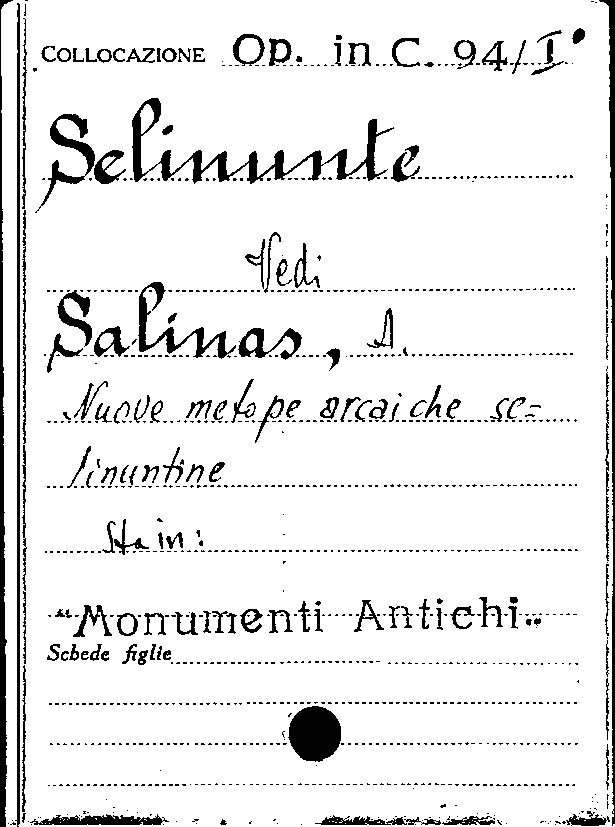 COLLOCAZIONE Op. in C. 94/I°
Selinunte
Vedi
Salinas, A.
Nuove metope arcaiche se=
linuntine
Sta in:
"Monumenti Antichi"
Schede figlie